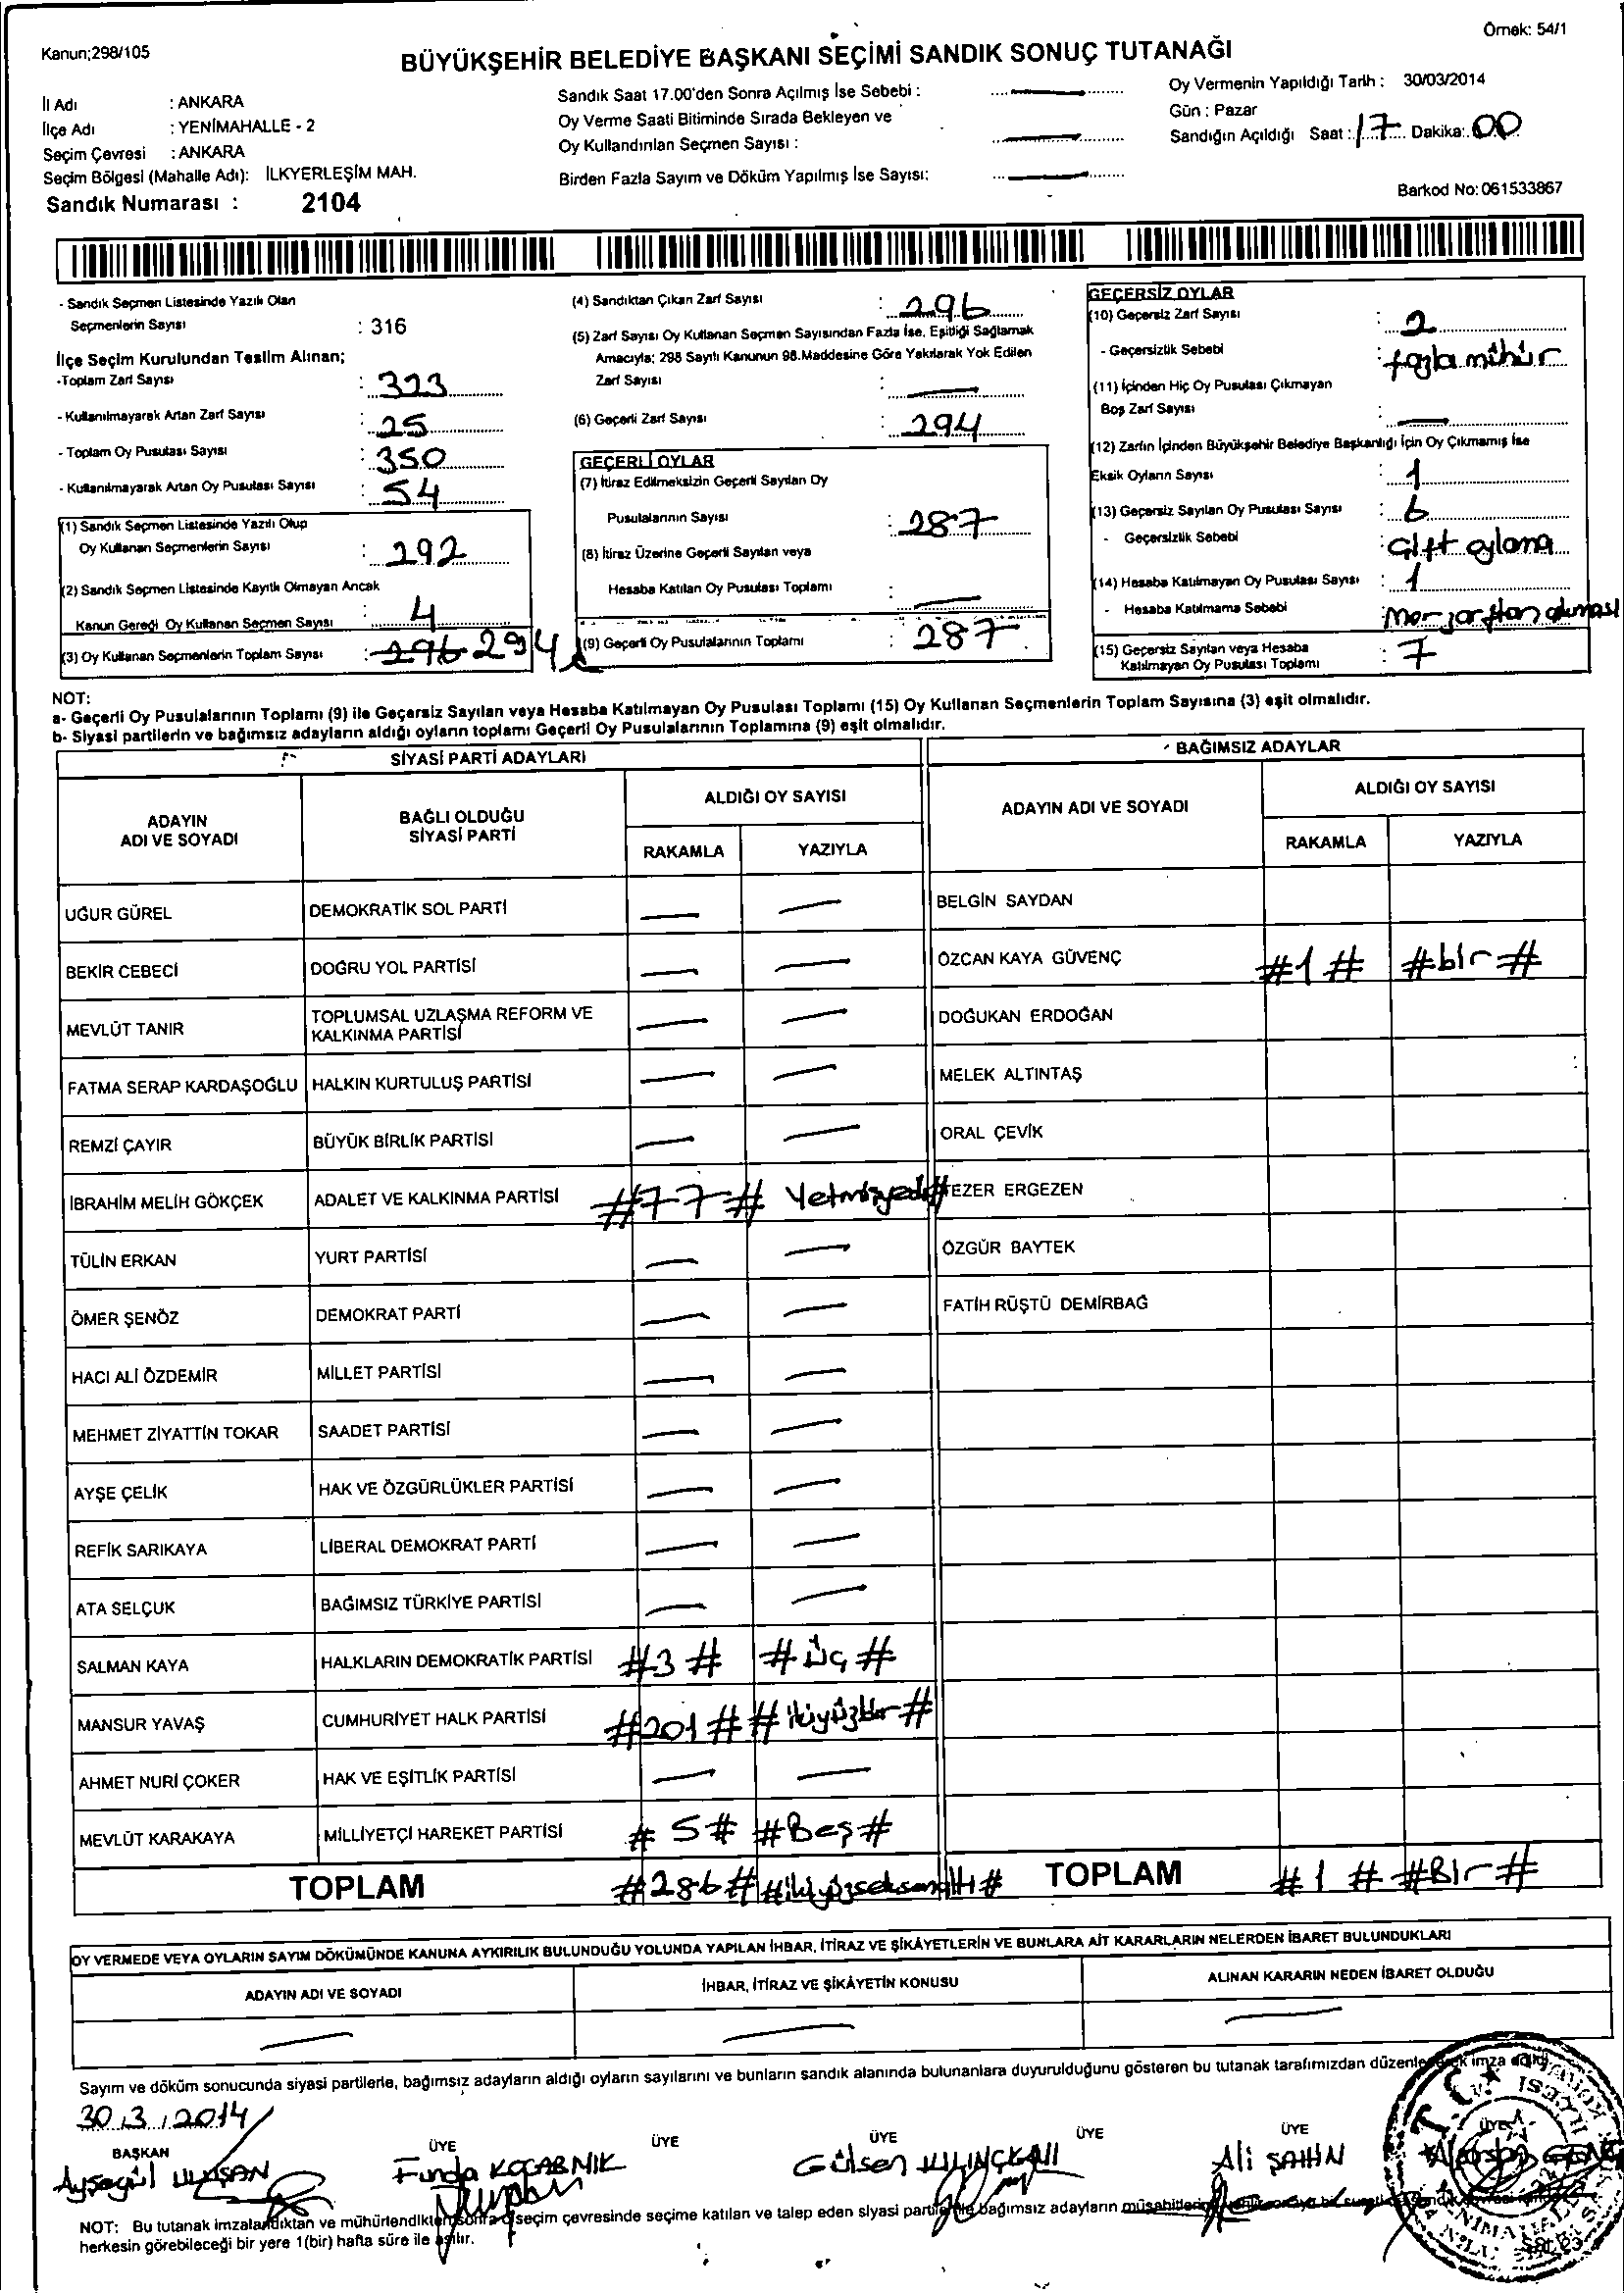 Kanun;298/105
Örnek: 54/1
BÜYÜKŞEHİR BELEDİYE BAŞKANI SEÇİMİ SANDIK SONUÇ TUTANAĞI
İl Adı : ANKARA
İlçe Adı : YENİMAHALLE - 2
Seçim Çevresi : ANKARA
Seçim Bölgesi (Mahalle Adı): İLKYERLEŞİM MAH.
Sandık Numarası : 2104
Sandık Saat 17.00'den Sonra Açılmış İse Sebebi :
Oy Verme Saati Bitiminde Sırada Bekleyen ve
Oy Kullandırılan Seçmen Sayısı :
Birden Fazla Sayım ve Döküm Yapılmış İse Sayısı:
Oy Vermenin Yapıldığı Tarih : 30/03/2014
Gün : Pazar
Sandığın Açıldığı Saat : 17 Dakika: 00
Barkod No: 061533867
- Sandık Seçmen Listesinde Yazılı Olan
Seçmenlerin Sayısı : 316
İlçe Seçim Kurulundan Teslim Alınan;
-Toplam Zarf Sayısı : 323
- Kullanılmayarak Artan Zarf Sayısı : 25
- Toplam Oy Pusulası Sayısı : 350
- Kullanılmayarak Artan Oy Pusulası Sayısı : 54
(1) Sandık Seçmen Listesinde Yazılı Olup
Oy Kullanan Seçmenlerin Sayısı : 292
(2) Sandık Seçmen Listesinde Kayıtlı Olmayan Ancak
Kanun Gereği Oy Kullanan Seçmen Sayısı : 4
(3) Oy Kullanan Seçmenlerin Toplam Sayısı : 296 294
(4) Sandıktan Çıkan Zarf Sayısı : 296
(5) Zarf Sayısı Oy Kullanan Seçmen Sayısından Fazla İse, Eşitliği Sağlamak
Amacıyla; 298 Sayılı Kanunun 98.Maddesine Göre Yakılarak Yok Edilen
Zarf Sayısı :
(6) Geçerli Zarf Sayısı : 294
GEÇERLİ OYLAR
(7) İtiraz Edilmeksizin Geçerli Sayılan Oy
Pusulalarının Sayısı : 287
(8) İtiraz Üzerine Geçerli Sayılan veya
Hesaba Katılan Oy Pusulası Toplamı :
(9) Geçerli Oy Pusulalarının Toplamı : 287
GEÇERSİZ OYLAR
(10) Geçersiz Zarf Sayısı : 2
- Geçersizlik Sebebi : fazla mühür
(11) İçinden Hiç Oy Pusulası Çıkmayan
Boş Zarf Sayısı :
(12) Zarfın İçinden Büyükşehir Belediye Başkanlığı İçin Oy Çıkmamış İse
Eksik Oyların Sayısı : 1
(13) Geçersiz Sayılan Oy Pusulası Sayısı : 6
- Geçersizlik Sebebi : Çift oylama
(14) Hesaba Katılmayan Oy Pusulası Sayısı : 1
- Hesaba Katılmama Sebebi : Mor zarftan çıkması
(15) Geçersiz Sayılan veya Hesaba
Katılmayan Oy Pusulası Toplamı : 7
NOT:
a- Geçerli Oy Pusulalarının Toplamı (9) ile Geçersiz Sayılan veya Hesaba Katılmayan Oy Pusulası Toplamı (15) Oy Kullanan Seçmenlerin Toplam Sayısına (3) eşit olmalıdır.
b- Siyasi partilerin ve bağımsız adayların aldığı oyların toplamı Geçerli Oy Pusulalarının Toplamına (9) eşit olmalıdır.
SİYASİ PARTİ ADAYLARI
BAĞIMSIZ ADAYLAR
ADAYIN ADI VE SOYADI
BAĞLI OLDUĞU SİYASİ PARTİ
ALDIĞI OY SAYISI
RAKAMLA YAZIYLA
ADAYIN ADI VE SOYADI
ALDIĞI OY SAYISI
RAKAMLA YAZIYLA
UĞUR GÜREL DEMOKRATİK SOL PARTİ BELGİN SAYDAN
BEKİR CEBECİ DOĞRU YOL PARTİSİ ÖZCAN KAYA GÜVENÇ #1# #bir#
MEVLÜT TANIR TOPLUMSAL UZLAŞMA REFORM VE KALKINMA PARTİSİ DOĞUKAN ERDOĞAN
FATMA SERAP KARDAŞOĞLU HALKIN KURTULUŞ PARTİSİ MELEK ALTINTAŞ
REMZİ ÇAYIR BÜYÜK BİRLİK PARTİSİ ORAL ÇEVİK
İBRAHİM MELİH GÖKÇEK ADALET VE KALKINMA PARTİSİ #77# Yetmişyedi# TEZER ERGEZEN
TÜLİN ERKAN YURT PARTİSİ ÖZGÜR BAYTEK
ÖMER ŞENÖZ DEMOKRAT PARTİ FATİH RÜŞTÜ DEMİRBAĞ
HACI ALİ ÖZDEMİR MİLLET PARTİSİ
MEHMET ZİYATTİN TOKAR SAADET PARTİSİ
AYŞE ÇELİK HAK VE ÖZGÜRLÜKLER PARTİSİ
REFİK SARIKAYA LİBERAL DEMOKRAT PARTİ
ATA SELÇUK BAĞIMSIZ TÜRKİYE PARTİSİ
SALMAN KAYA HALKLARIN DEMOKRATİK PARTİSİ #3# #üç#
MANSUR YAVAŞ CUMHURİYET HALK PARTİSİ #201# #ikiyüzbir#
AHMET NURİ ÇOKER HAK VE EŞİTLİK PARTİSİ
MEVLÜT KARAKAYA MİLLİYETÇİ HAREKET PARTİSİ #5# #Beş#
TOPLAM #286# #ikiyüzseksenaltı# TOPLAM #1# #Bir#
OY VERMEDE VEYA OYLARIN SAYIM DÖKÜMÜNDE KANUNA AYKIRILIK BULUNDUĞU YOLUNDA YAPILAN İHBAR, İTİRAZ VE ŞİKÂYETLERİN VE BUNLARA AİT KARARLARIN NELERDEN İBARET BULUNDUKLARI
ADAYIN ADI VE SOYADI İHBAR, İTİRAZ VE ŞİKÂYETİN KONUSU ALINAN KARARIN NEDEN İBARET OLDUĞU
Sayım ve döküm sonucunda siyasi partilerle, bağımsız adayların aldığı oyların sayılarını ve bunların sandık alanında bulunanlara duyurulduğunu gösteren bu tutanak tarafımızdan düzenlenerek imza edildi.
30.3.2014
BAŞKAN ÜYE ÜYE ÜYE ÜYE ÜYE ÜYE
Ayşegül Funda Gülsen Ali ŞAHİN
NOT: Bu tutanak imzalandıktan ve mühürlendikten sonra seçim çevresinde seçime katılan ve talep eden siyasi parti ile bağımsız adayların müşahitlerine
herkesin görebileceği bir yere 1(bir) hafta süre ile asılır.